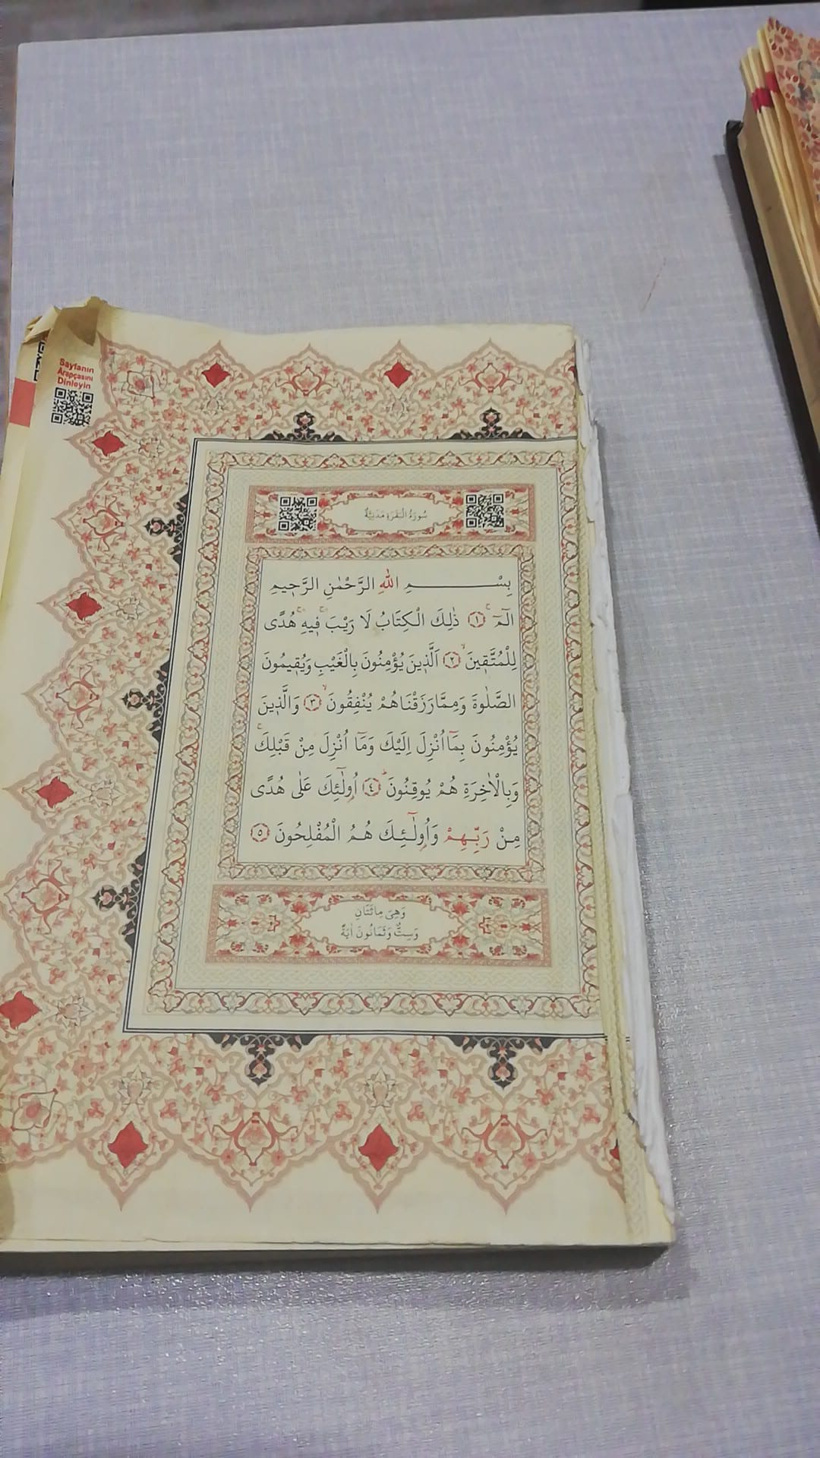 Sayfanın
Arapçasını
Dinleyin
سُورَةُ الْبَقَرَةِ مَدَنِيَّةٌ
بِسْــــــــمِ اللّٰهِ الرَّحْمٰنِ الرَّح۪يمِ
الٓمٓ ۚ ﴿١﴾ ذٰلِكَ الْكِتَابُ لَا رَيْبَ ۚۛ ف۪يهِ ۚۛ هُدًى
لِلْمُتَّق۪ينَ ۙ ﴿٢﴾ اَلَّذ۪ينَ يُؤْمِنُونَ بِالْغَيْبِ وَيُق۪يمُونَ
الصَّلٰوةَ وَمِمَّا رَزَقْنَاهُمْ يُنْفِقُونَ ۙ ﴿٣﴾ وَالَّذ۪ينَ
يُؤْمِنُونَ بِمَٓا اُنْزِلَ اِلَيْكَ وَمَٓا اُنْزِلَ مِنْ قَبْلِكَ ۚ
وَبِالْاٰخِرَةِ هُمْ يُوقِنُونَ ۜ ﴿٤﴾ اُو۬لٰٓئِكَ عَلٰى هُدًى
مِنْ رَبِّهِمْ وَاُو۬لٰٓئِكَ هُمُ الْمُفْلِحُونَ ﴿٥﴾
وَهِيَ مِائَتَانِ
وَسِتٌّ وَثَمَانُونَ اٰيَةً